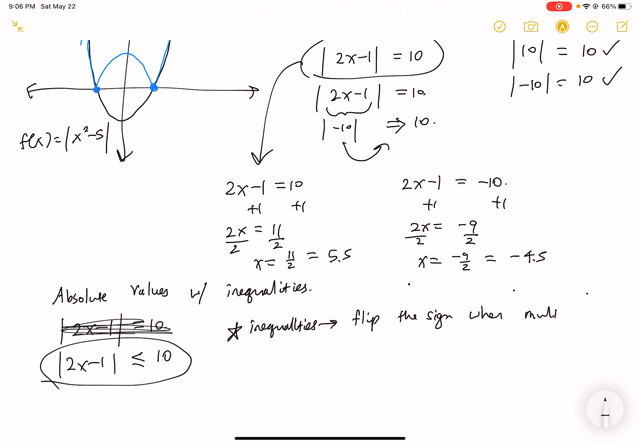 9:06 PM Sat May 22
66%
f(x)=|x²-5|
|2x-1| = 10
|2x-1| = 10
|-10| ⇒ 10.
|10| = 10 ✓
|-10| = 10 ✓
2x-1 = 10
+1 +1
2x/2 = 11/2
x = 11/2 = 5.5
2x-1 = -10.
+1 +1
2x/2 = -9/2
x = -9/2 = -4.5
Absolute values w/ inequalities.
|2x-1| = 10
|2x-1| ≤ 10
★ inequalities → flip the sign when mul